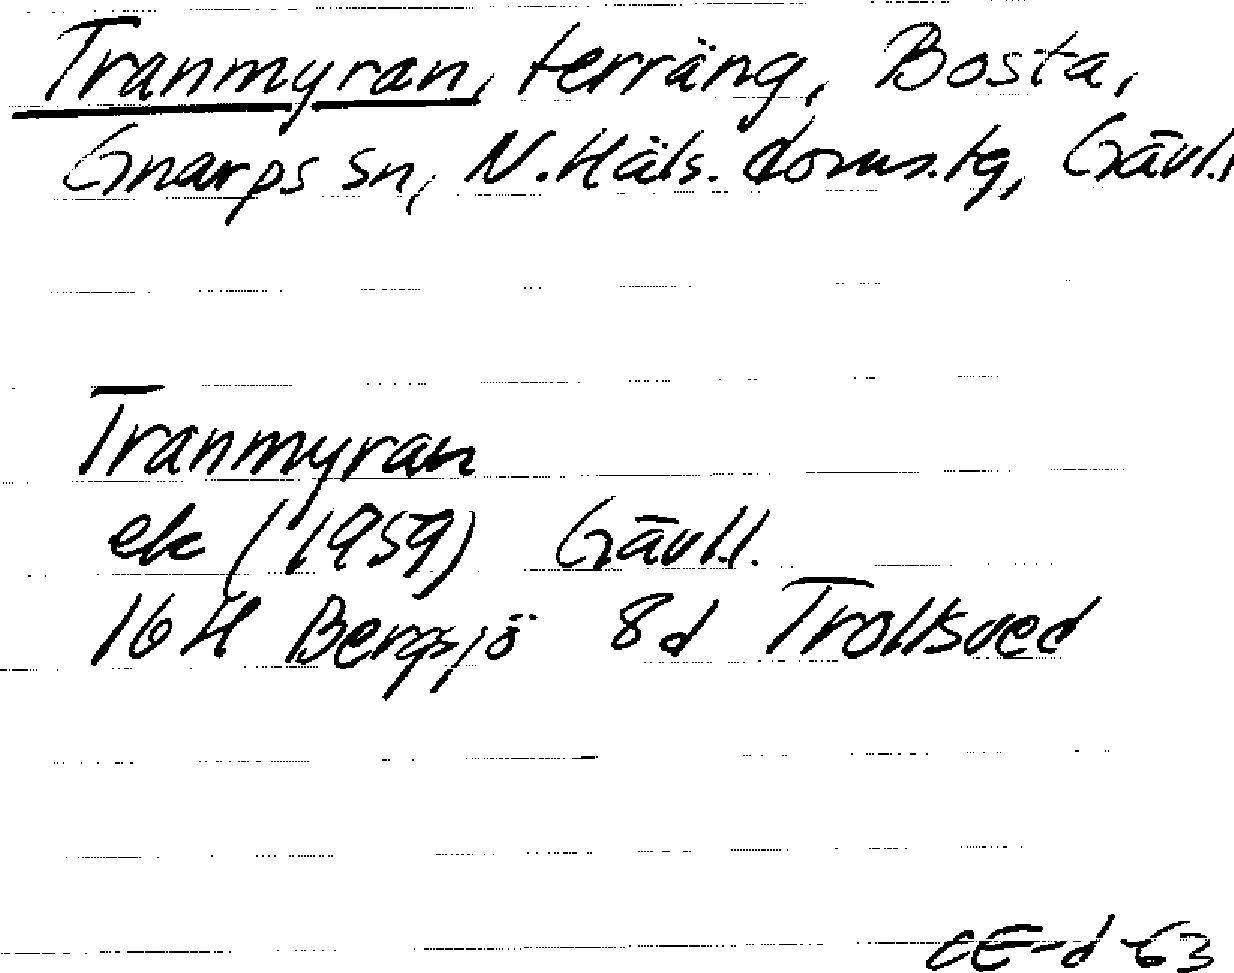 Tranmyran, terräng, Bosta,
Gnarps sn, N. Häls. doms.tg, Gävl.l
Tranmyran
ek (1959) Gävl.l.
16 H Bergsjö 8d Trollsved
CE-d -63